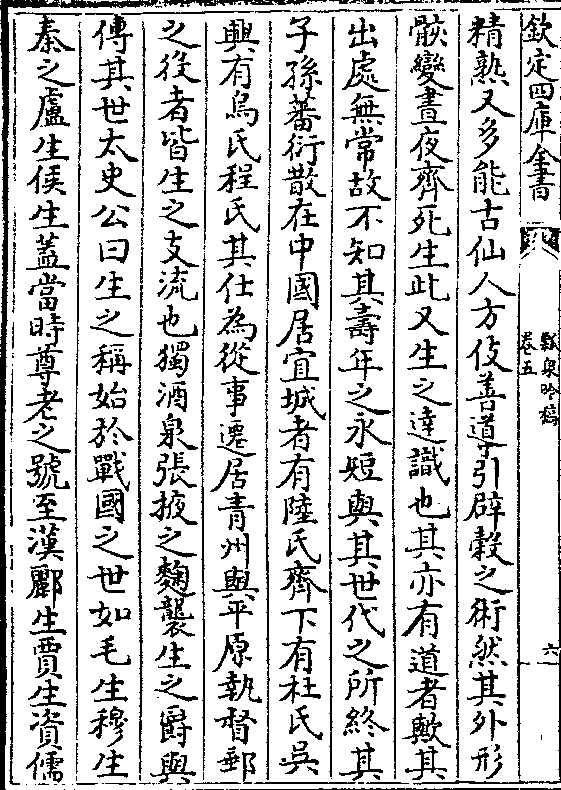 欽定四庫全書
瓢泉吟稿
卷五
六
精熟又多能古仙人方伎善導引辟穀之術然其外形
骸變晝夜齊死生此又生之達識也其亦有道者歟其
出處無常故不知其壽年之永短與其世代之所終其
子孫蕃衍散在中國居宜城者有陸氏齊下有杜氏吳
興有烏氏程氏其仕為從事遷居青州與平原執督郵
之役者皆生之支流也獨酒泉張掖之麴襲生之爵與
傳其世太史公曰生之稱始於戰國之世如毛生穆生
秦之盧生侯生蓋當時尊老之號至漢酈生賈生資儒